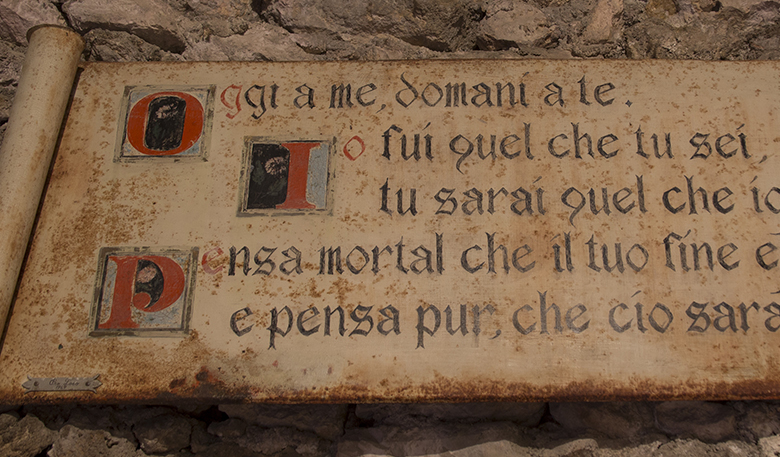 Oggi a me, domani a te.
Io fui quel che tu sei,
tu sarai quel che io
Pensa mortal che il tuo fine è
e pensa pur, che cio sarà